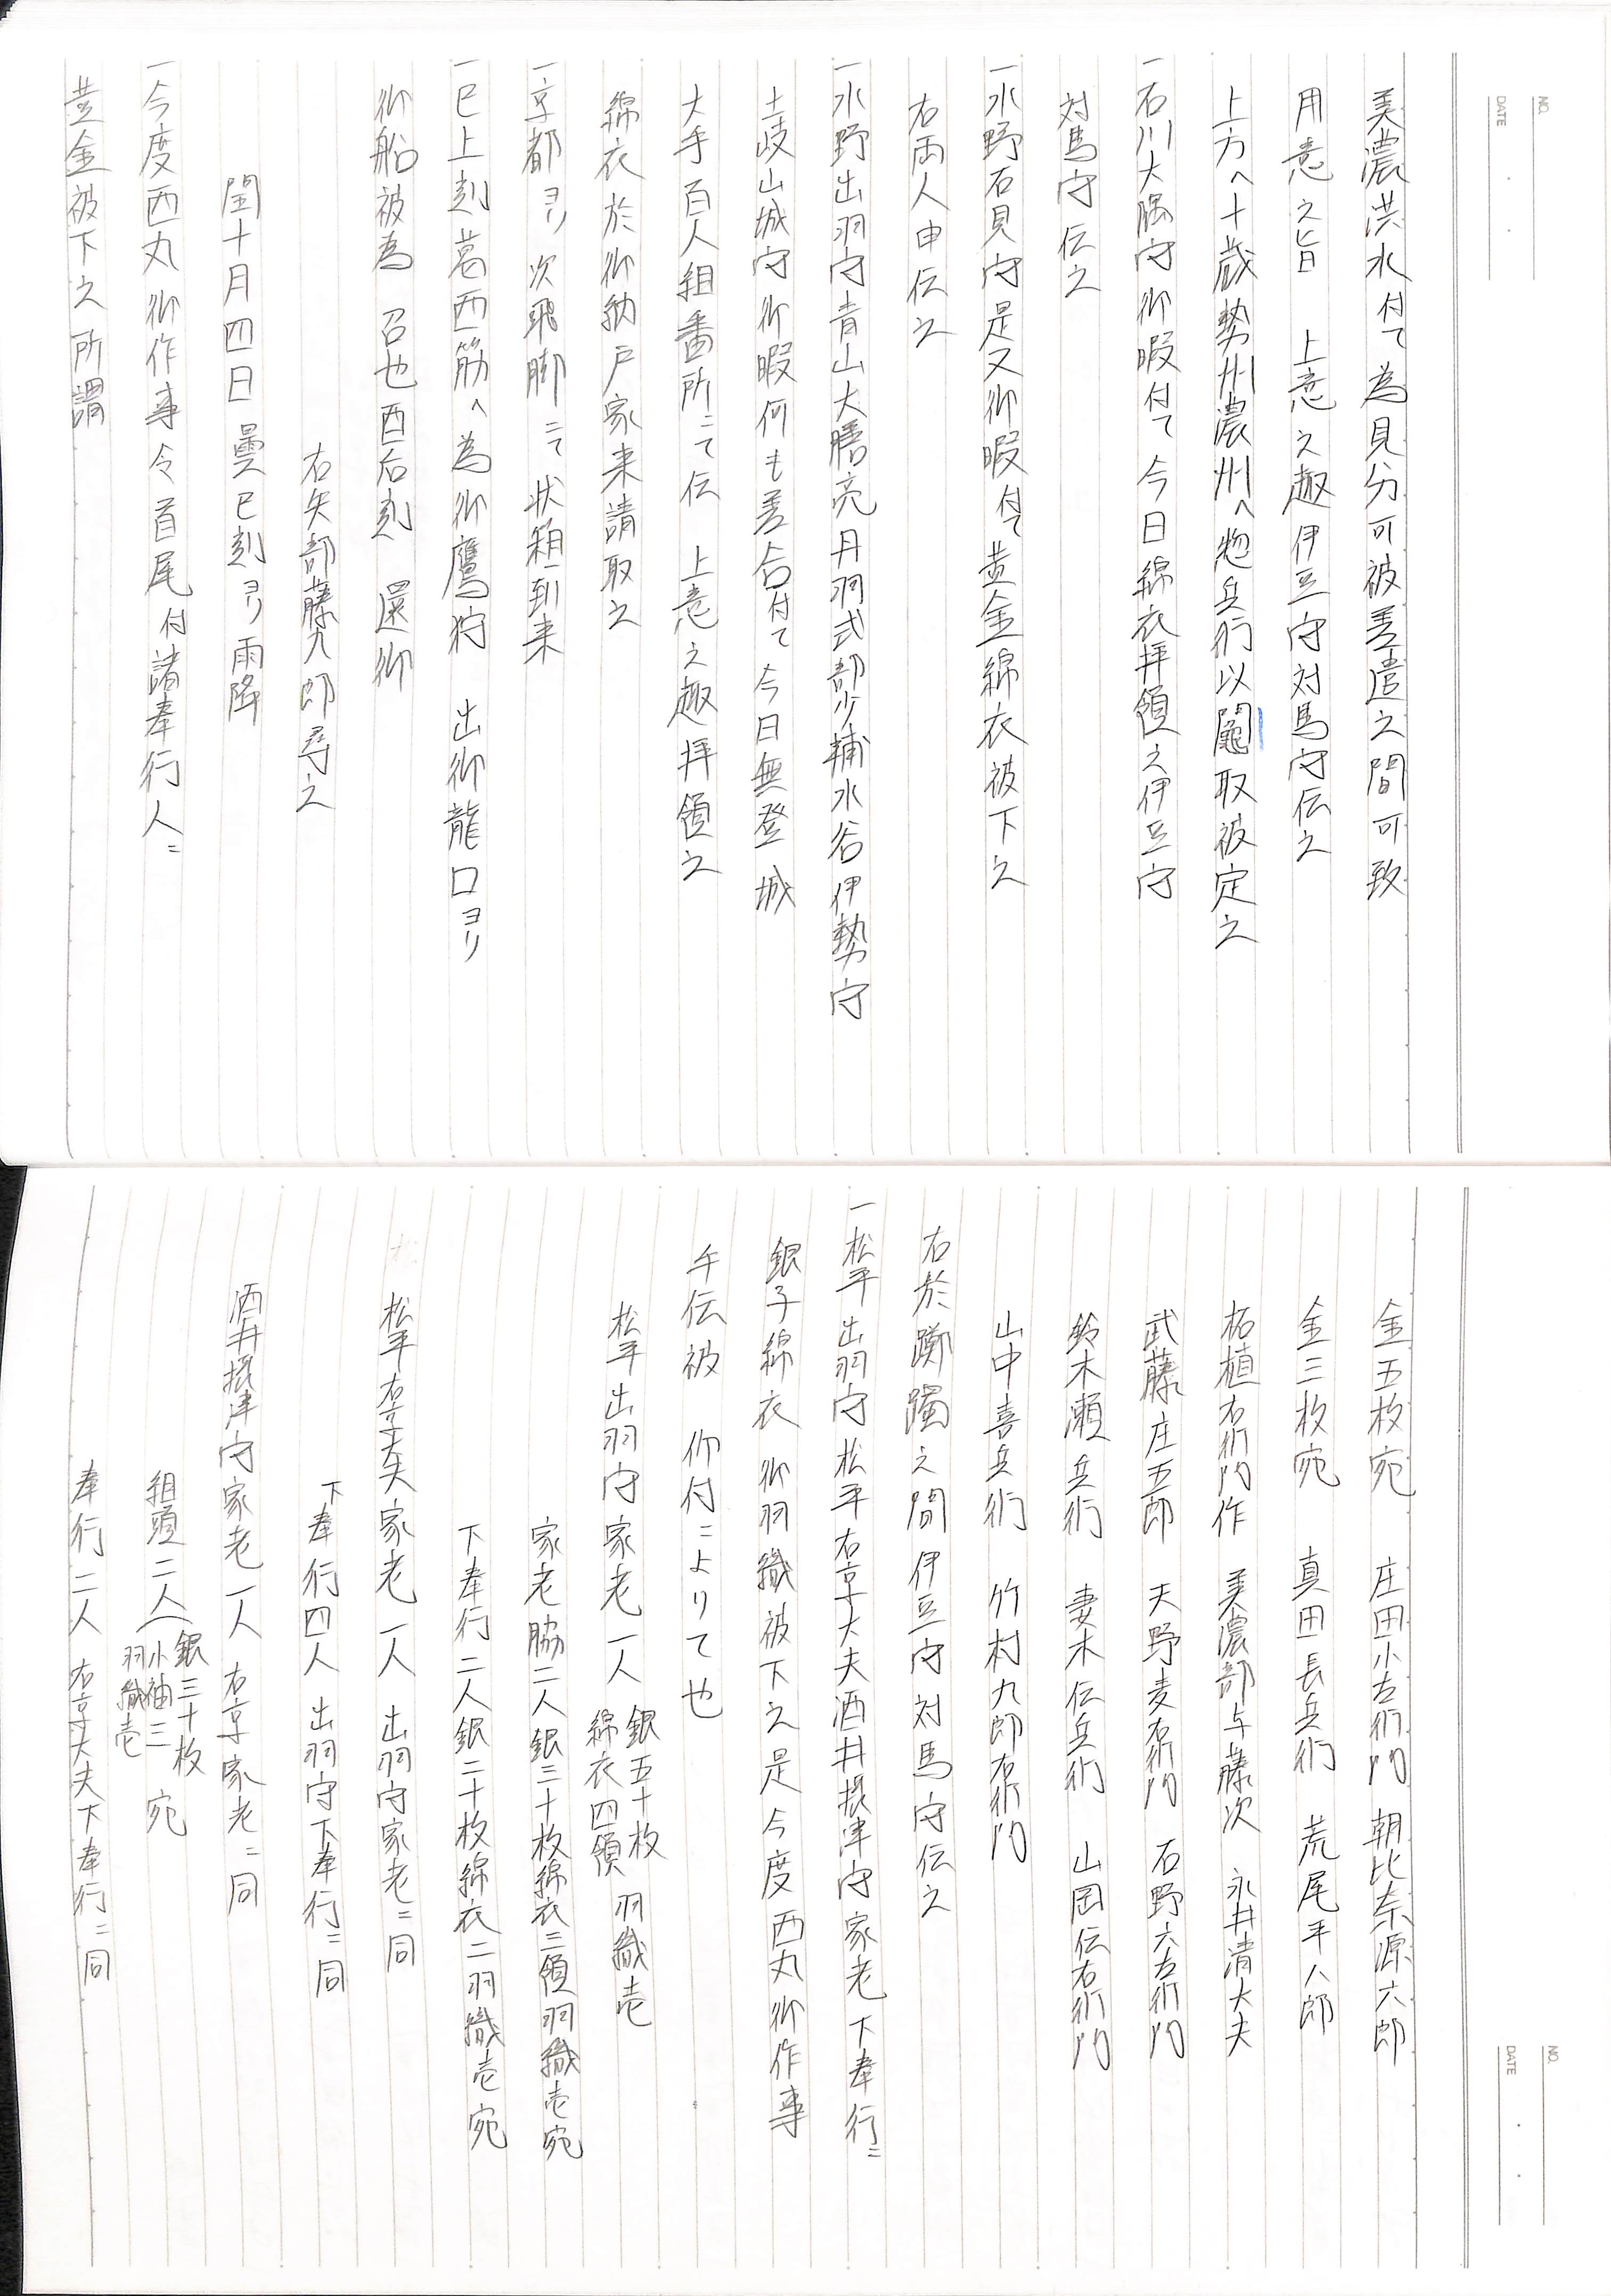 美濃洪水付て為見分可被差遣之間可致
用意之旨　上意之趣伊豆守対馬守伝之
上方へ十歳勢州濃州へ惣兵衛以鬮取被定之
一石川大隅守御暇付て今日綿衣拝領之伊豆守
対馬守伝之
一水野石見守是又御暇付て黄金綿衣被下之
右両人申伝之
一水野出羽守青山大膳亮丹羽式部少輔水谷伊勢守
土岐山城守御暇何も差合付て今日無登城
大手百人組番所ニて伝　上意之趣拝領之
綿衣於御納戸家来請取之
一京都ヨリ次飛脚ニて状箱到来
一巳上刻葛西筋へ為御鷹狩　出御龍口ヨリ
御船被為　召也酉后刻　還御
右矢部藤九郎尋之
閏十月四日曇巳刻ヨリ雨降
一今度西丸御作事令首尾付諸奉行人ニ
黄金被下之所謂
金五枚宛　庄田小左衛門　朝比奈源六郎
金三枚宛　真田長兵衛　荒尾平八郎
柘植右衛門作　美濃部与藤次　永井清大夫
武藤庄五郎　天野麦右衛門　石野六左衛門
鈴木瀬兵衛　妻木伝兵衛　山岡伝右衛門
山中喜兵衛　竹村九郎右衛門
右於躑躅之間伊豆守対馬守伝之
一松平出羽守松平右京大夫酒井摂津守家老下奉行ニ
銀子綿衣御羽織被下之是今度西丸御作事
手伝被　仰付ニよりて也
松平出羽守家老一人　銀五十枚　綿衣四領　羽織壱
家老脇二人銀三十枚綿衣三領羽織壱宛
下奉行二人銀二十枚綿衣二羽織壱宛
松平右京大夫家老一人　出羽守家老ニ同
下奉行四人　出羽守下奉行ニ同
酒井摂津守家老一人　右京家老ニ同
組頭二人　銀三十枚　小袖三　羽織壱　宛
奉行二人　右京大夫下奉行ニ同
NO.
DATE
NO.
DATE